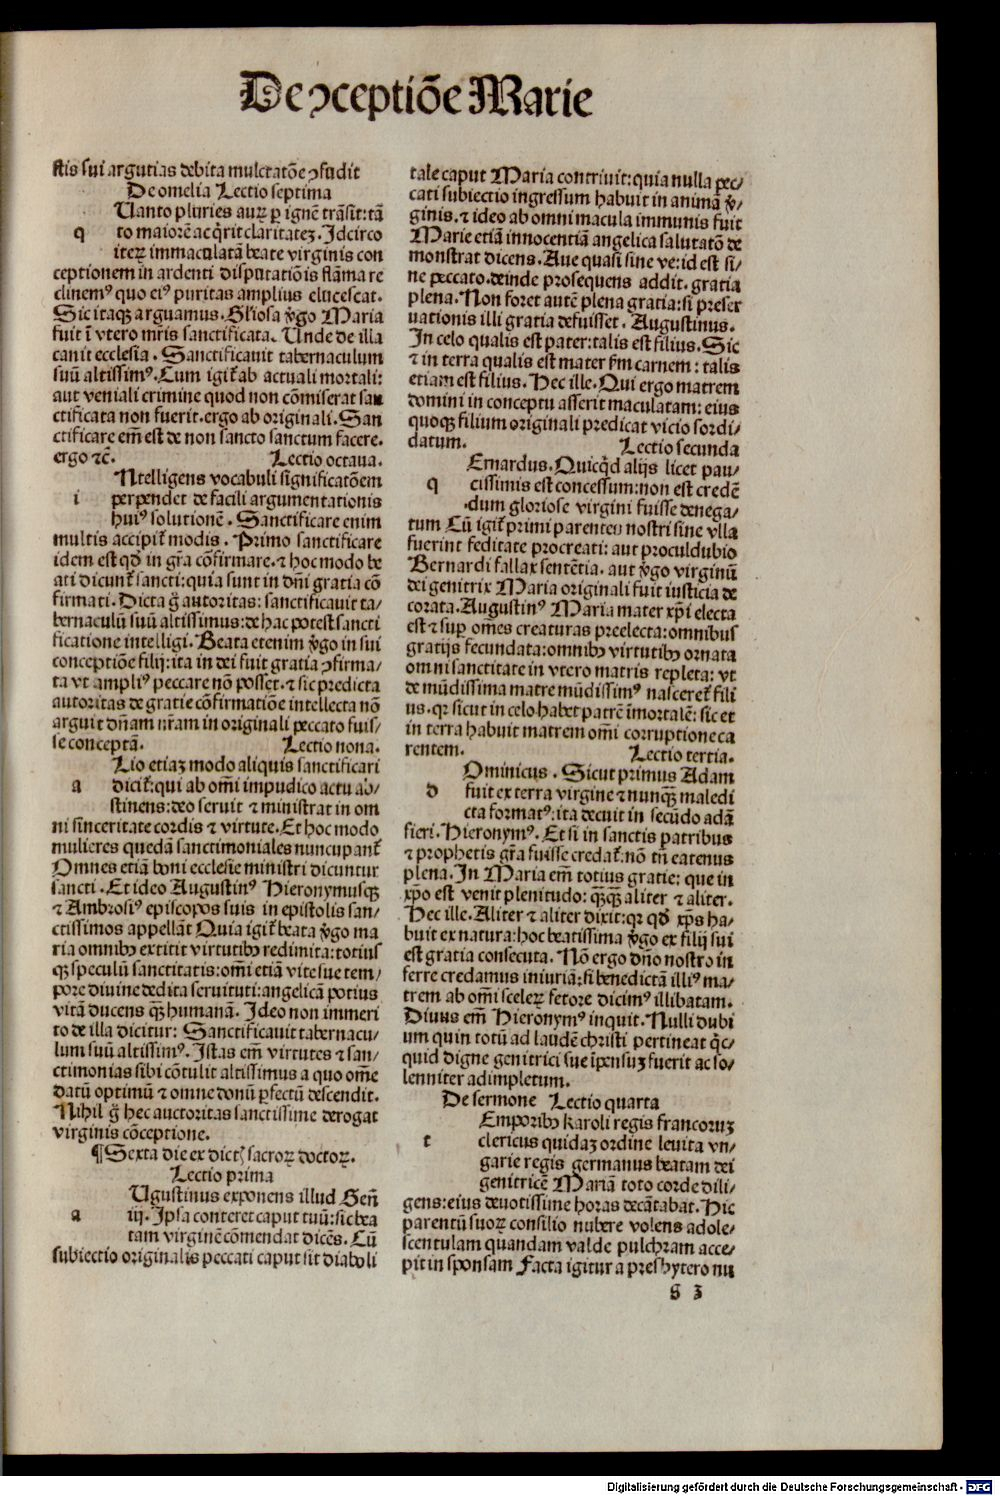 De ɔceptiōe Marie
stis sui argutias debita mulctatōe ɔfudit
De omelia Lectio septima
Uanto pluries auꝝ ꝑ ignē trāsit: tā
q to maiorē acq̇rit claritateꝫ. Idcirco
iteꝝ immaculatā beate virginis con
ceptionem in ardenti disputatiōis flāma re
clinemꝰ quo eiꝰ puritas amplius elucescat.
Sic itaqꝫ arguamus. Gl̄iosa v̄go Maria
fuit ī vtero mr̄is sanctificata. Unde de illa
canit ecclesia. Sanctificauit tabernaculum
suū altissimꝰ. Cum igit᷑ ab actuali mortali:
aut veniali crimine quod non cōmiserat san
ctificata non fuerit. ergo ab originali. San
ctificare em̄ est de non sancto sanctum facere.
ergo ⁊c̄. Lectio octaua.
Ntelligens vocabuli significatōem
i perpendet de facili argumentationis
huiꝰ solutionē. Sanctificare enim
multis accipit᷑ modis. Primo sanctificare
idem est qd̄ in gr̄a cōfirmare. ⁊ hoc modo be
ati dicunt᷑ sancti: quia sunt in dn̄i gratia cō
firmati. Dicta g̊ autoritas: sanctificauit ta/
bernaculū suū altissimus: de hac potest sancti
ficatione intelligi. Beata etenim v̄go in sui
conceptiōe filij: ita in dei fuit gratia ɔfirma/
ta vt ampliꝰ peccare nō posset. ⁊ sic predicta
autoritas de gratie cōfirmatiōe intellecta nō
arguit dn̄am nr̄am in originali peccato fuis/
se conceptā. Lectio nona.
Lio etiaꝫ modo aliquis sanctificari
a dicit᷑: qui ab om̄i impudico actu ab/
stinens: deo seruit ⁊ ministrat in om
ni sinceritate cordis ⁊ virtute. Et hoc modo
mulieres quedā sanctimoniales nuncupant᷑
Omnes etiā boni ecclesie ministri dicuntur
sancti. Et ideo Augustinꝰ Hieronymusqꝫ
⁊ Ambrosiꝰ episcopos suis in epistolis san/
ctissimos appellāt Quia igit᷑ beata v̄go ma
ria omnibꝰ extitit virtutibꝰ redimita: totius
qꝫ speculū sanctitatis: om̄i etiā vite sue tem/
pore diuine dedita seruituti: angelicā potius
vitā ducens qꝫ humanā. Ideo non immeri
to de illa dicitur: Sanctificauit tabernacu/
lum suū altissimꝰ. Istas em̄ virtutes ⁊ san/
ctimonias sibi cōtulit altissimus a quo om̄e
datū optimū ⁊ omne donū ꝑfectū descendit.
Nihil g̊ hec auctoritas sanctissime derogat
virginis cōceptione.
¶ Sexta die ex dictꝭ sacroꝝ doctoꝝ.
Lectio prima
Ugustinus exponens illud Geñ
a iij. Ipsa conteret caput tuū: sic bea
tam virginē cōmendat dicēs. Cū
subiectio originalis peccati caput sit diaboli
tale caput Maria contriuit: quia nulla pec/
cati subiectio ingressum habuit in animā v̄/
ginis. ⁊ ideo ab omni macula immunis fuit
Marie etiā innocentiā angelica salutatō de
monstrat dicens. Aue quasi sine ve: id est si/
ne peccato. deinde prosequens addit. gratia
plena. Non foret autē plena gratia: si preser
uationis illi gratia defuisset. Augustinus.
In celo qualis est pater: talis est filius. Sic
⁊ in terra qualis est mater ẜm carnem: talis
etiam est filius. Hec ille. Qui ergo matrem
domini in conceptu asserit maculatam: eius
quoqꝫ filium originali predicat vicio sordi/
datum. Lectio secunda
Ernardus. Quicq̇d alijs licet pau/
q cissimis est concessum: non est credē
dum gloriose virgini fuisse denega/
tum Cū igit᷑ primi parentes nostri sine vlla
fuerint feditate procreati: aut proculdubio
Bernardi fallax sentētia. aut v̄go virginū
dei genitrix Maria originali fuit iusticia de
corata. Augustinꝰ Maria mater xp̄i electa
est ⁊ sup om̄es creaturas preelecta: omnibus
gratijs fecundata: omnibꝰ virtutibꝰ ornata
omni sanctitate in vtero matris repleta: vt
de mūdissima matre mūdissimꝰ nasceret᷑ fili
us. qꝛ sicut in celo habet patrē imortalē: sic et
in terra habuit matrem om̄i corruptione ca
rentem. Lectio tertia.
Ominicus. Sicut primus Adam
d fuit ex terra virgine ⁊ nunqꝫ maledi
cta formatꝰ: ita decuit in secūdo adā
fieri. Hieronymꝰ. Et si in sanctis patribus
⁊ prophetis gr̄a fuisse credat᷑: nō tn̄ eatenus
plena. In Maria em̄ totius gratie: que in
xp̄o est venit plenitudo: qꝫqꝫ aliter ⁊ aliter.
Hec ille. Aliter ⁊ aliter dixit: qꝛ qd̄ xp̄s ha/
buit ex natura: hoc beatissima v̄go ex filij sui
est gratia consecuta. Nō ergo dn̄o nostro in
ferre credamus iniuriā: si benedictā illiꝰ ma/
trem ab om̄i sceleꝝ fetore dicimꝰ illibatam.
Diuus em̄ Hieronymꝰ inquit. Nulli dubi
um quin totū ad laudē christi pertineat q̇c/
quid digne genitrici sue īpensuꝫ fuerit ac so/
lenniter adimpletum.
De sermone Lectio quarta
Emporibꝰ karoli regis francoruꝫ
t clericus quidaꝫ ordine leuita vn/
garie regis germanus beatam dei
genitricē Mariā toto corde dili/
gens: eius deuotissime horas decātabat. Hic
parentū suoꝝ consilio nubere volens adole/
scentulam quandam valde pulchram acce/
pit in sponsam Facta igitur a presbytero nu
g 3
Digitalisierung gefördert durch die Deutsche Forschungsgemeinschaft - DFG